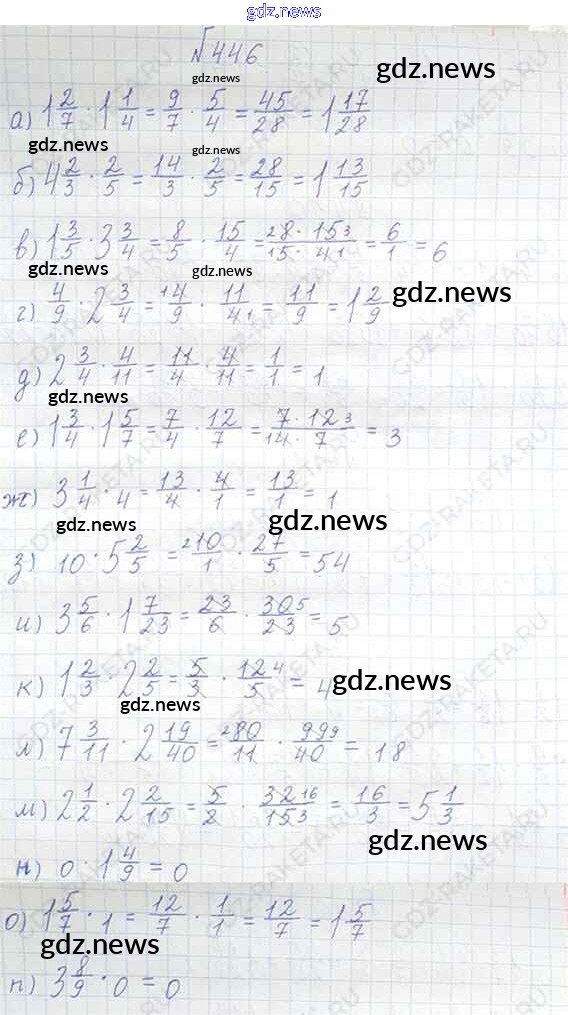 gdz.news
№446
gdz.news
gdz.news
а) 1 2/7 · 1 1/4 = 9/7 · 5/4 = 45/28 = 1 17/28
gdz.news
gdz.news
б) 4 2/3 · 2/5 = 14/3 · 2/5 = 28/15 = 1 13/15
в) 1 3/5 · 3 3/4 = 8/5 · 15/4 = 28 · 153/15 · 41 = 6/1 = 6
gdz.news
gdz.news
г) 4/9 · 2 3/4 = 14/9 · 11/41 = 11/9 = 1 2/9
gdz.news
д) 2 3/4 · 4/11 = 11/4 · 4/11 = 1/1 = 1
gdz.news
е) 1 3/4 · 1 5/7 = 7/4 · 12/7 = 7 · 123/14 · 7 = 3
ж) 3 1/4 · 4 = 13/4 · 4/1 = 13/1 = 1
gdz.news
gdz.news
з) 10 · 5 2/5 = 210/1 · 27/5 = 54
и) 3 5/6 · 1 7/23 = 23/6 · 305/23 = 5
к) 1 2/3 · 2 2/5 = 5/3 · 124/5 = 4
gdz.news
gdz.news
л) 7 3/11 · 2 19/40 = 280/11 · 999/40 = 18
м) 2 1/2 · 2 2/15 = 5/2 · 3216/153 = 16/3 = 5 1/3
gdz.news
н) 0 · 1 4/9 = 0
о) 1 5/7 · 1 = 12/7 · 1/1 = 12/7 = 1 5/7
gdz.news
п) 3 8/9 · 0 = 0
gdz.news